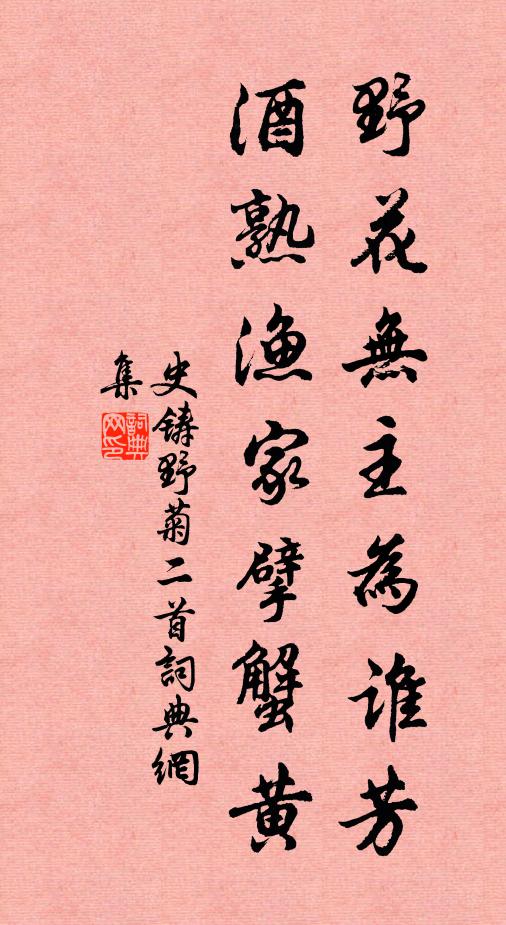 野花無主為誰芳
酒熟漁家擘蟹黄
史鑄野菊二首詞典網
集
詞典
网印